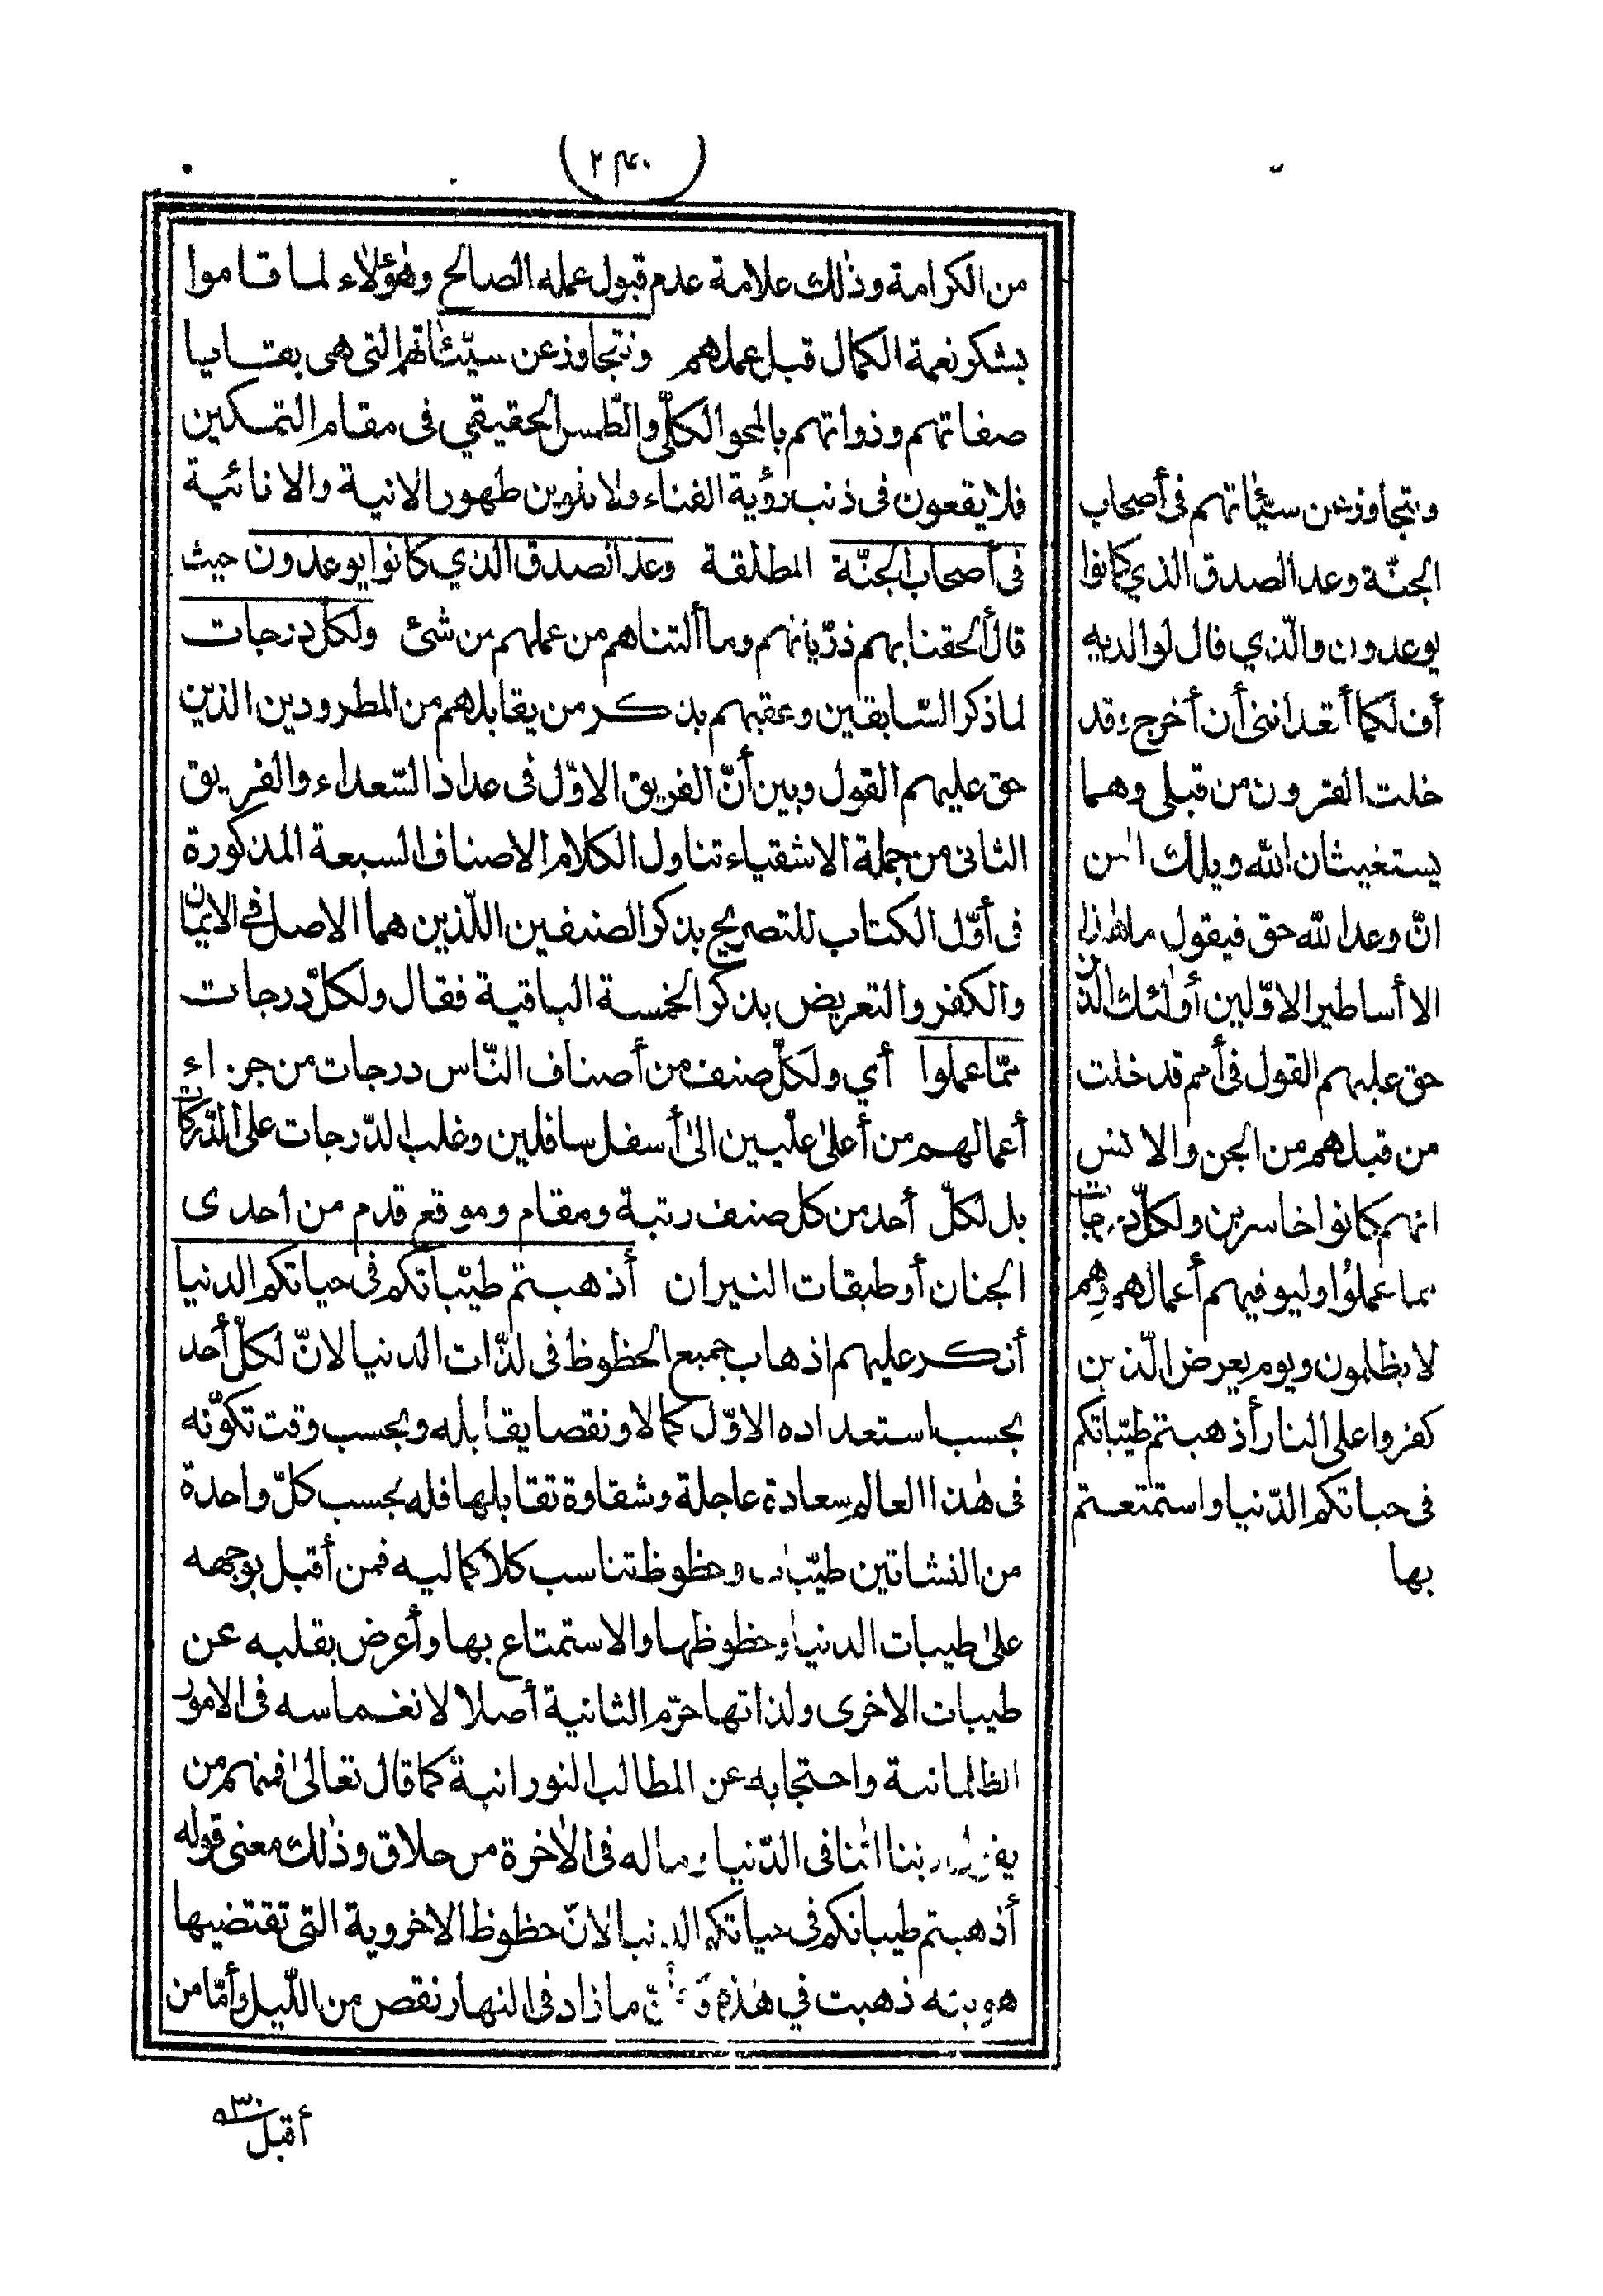 ٢٤٠
من الكرامة وذٰلك علامة عدم قبول عمله الصالح وهٰؤلاٰء لما قاموا
بشكر نعمة الكمال قبل عملهم ونتجاوز عن سيّئاتهم التي هي بقايا
صفاتهم وذواتهم بالمحو الكلّي والطّمس الحقيقي في مقام التمكين
فلا يقعون في ذنب رؤية الفناء ولا تلوين ظهور الانية والانائية
في أصحاب الجنّة المطلقة وعد الصدق الذي كانوا يوعدون حيث
قال ألحقنا بهم ذرّياتهم وما ألتناهم من عملهم من شئ ولكلّ درجات
لما ذكر السّابقين وعقبهم بذكر من يقابلهم من المطرودين الذين
حق عليهم القول وبين أنّ الفريق الاوّل في عداد السّعداء والفريق
الثانى من جملة الاشقياء تناول الكلام الاصناف السبعة المذكورة
في أوّل الكتاب للتصريح بذكر الصنفين اللّذين هما الاصل في الايمان
والكفر والتعريض بذكر الخمسة الباقية فقال ولكلّ درجات
ممّا عملوا أي ولكلّ صنف من أصناف النّاس درجات من جزاء
أعمالهم من أعلىٰ علّيين الىٰ أسفل سافلين وغلب الدّرجات على الدّركات
بل لكلّ أحد من كل صنف رتبة ومقام وموقع قدم من احدى
الجنان أو طبقات النيران أذهبتم طيّباتكم في حياتكم الدنيا
أنكر عليهم اذهاب جميع الحظوظ في لذّات الدنيا لانّ لكلّ أحد
بحسب استعداده الاوّل كمالا ونقصا يقابله وبحسب وقت تكوّنه
في هٰذا العالم سعادة عاجلة وشقاوة تقابلها فله بحسب كلّ واحدة
من النشاتين طيّبات وحظوظ تناسب كلا كماليه فمن أقبل بوجهه
علىٰ طيبات الدنيا وحظوظها والاستمتاع بها وأعرض بقلبه عن
طيبات الاخرى ولذاتها حرّم الثانية أصلا لانغماسه في الامور
الظلمانية واحتجابه عن المطالب النورانية كما قال تعالىٰ فمنهم من
ربنا اٰتنا في الدّنيا وماله في الاٰخرة من خلاق وذٰلك معنى قوله
أذهبتم طيباتكم في حياتكم الدنيا لانّ حظوظ الاخروية التي تقتضيها
هويته ذهبت في هٰذه ما زاد في النهار نقص من اللّيل وأمّا من
أقبل
ونتجاوز عن سيّئاتهم في أصحاب
الجنّة وعد الصدق الذي كانوا
يوعدون والّذي قال لوالديه
أف لكما أتعدانني أن أخرج وقد
خلت القرون من قبلي وهما
يستغيثان الله ويلك اٰمن
انّ وعد الله حق فيقول ما هٰذا
الا أساطير الاوّلين أولٰئك الّذين
حق عليهم القول في أمم قد خلت
من قبلهم من الجن والانس
انهم كانوا خاسرين ولكلّ درجات
مما عملوا وليوفيهم أعمالهم وهم
لا يظلمون ويوم يعرض الّذين
كفروا على النار أذهبتم طيّباتكم
في حياتكم الدّنيا واستمتعتم
بها